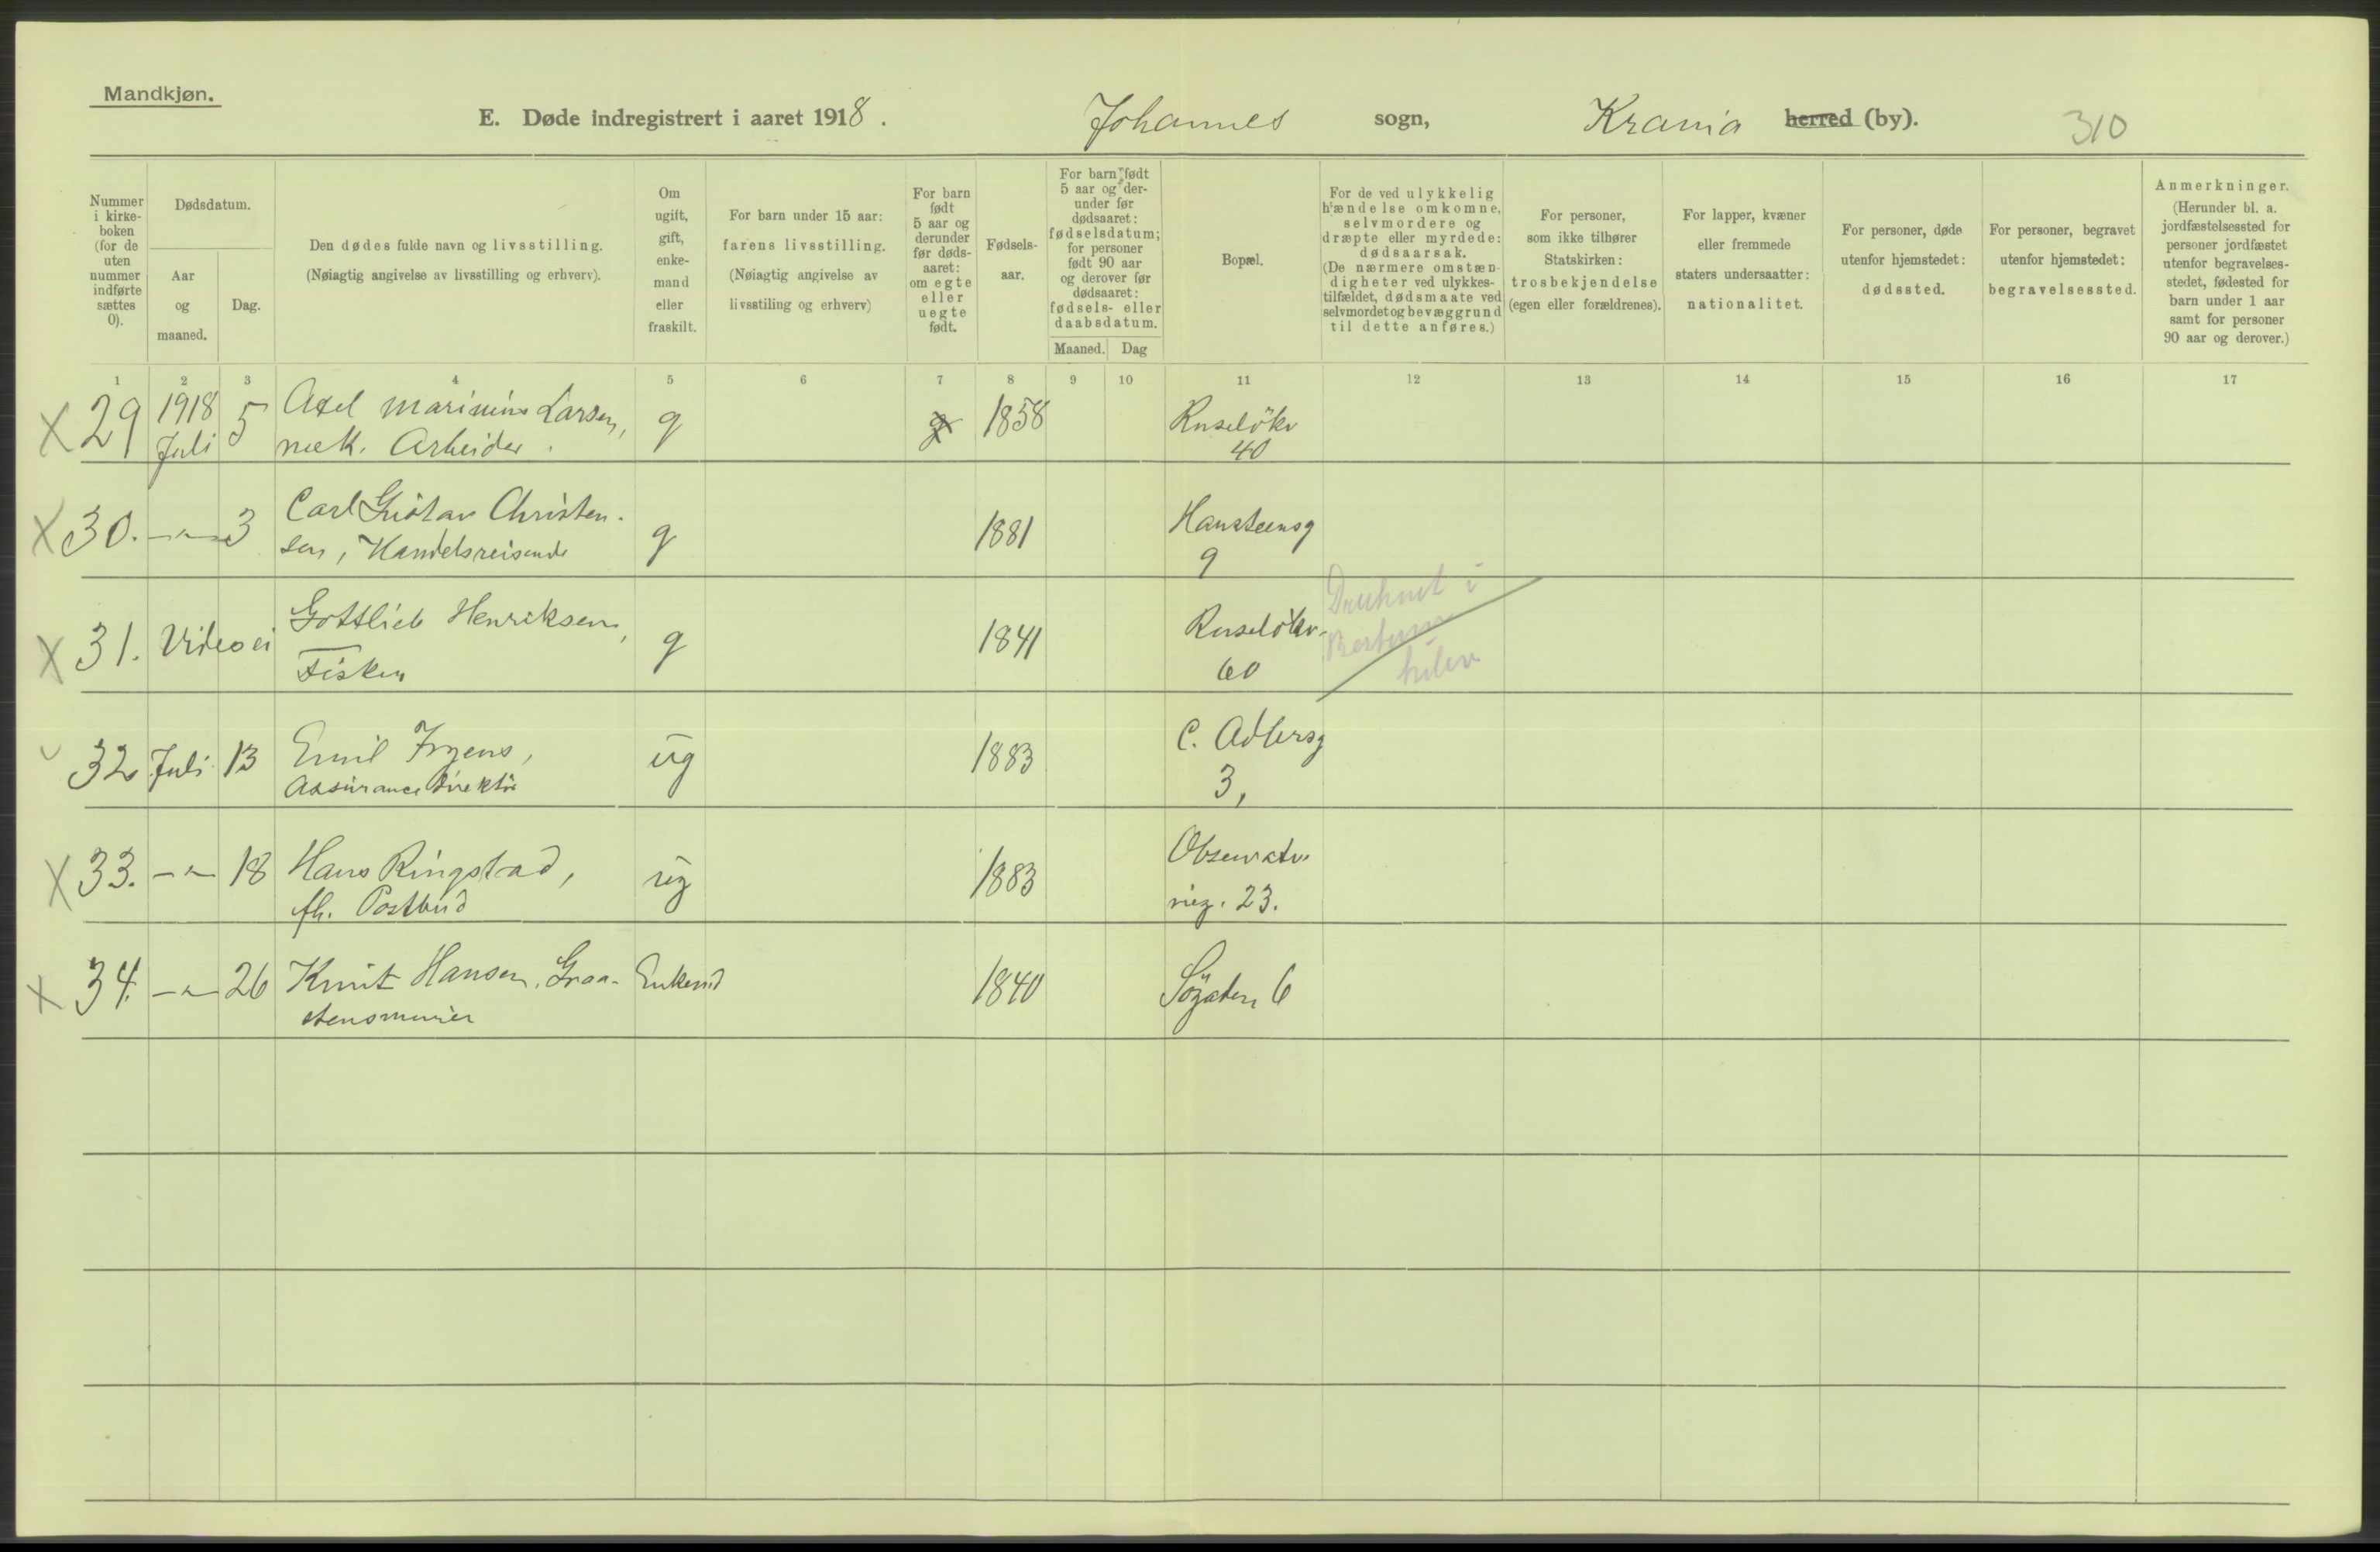 Mandkjøn.
E. Døde indregistrert i aaret 1918. Johannes sogn, Krania herred (by). 310
Nummer i kirke-boken (for de uten nummer indførte sættes 0).
Dødsdatum.
Aar og maaned.
Dag.
Den dødes fulde navn og livsstilling.
(Nøiagtig angivelse av livsstilling og erhverv).
Om ugift, gift, enke-mand eller fraskilt.
For barn under 15 aar:
farens livsstilling.
(Nøiagtig angivelse av
livsstiling og erhverv)
For barn født 5 aar og derunder før døds-aaret: om egte eller uegte født.
Fødsels-aar.
For barn født 5 aar og der-under før dødsaaret: fødselsdatum; for personer født 90 aar og derover før dødsaaret: fødsels- eller daabsdatum.
Maaned. Dag
Bopæl.
For de ved ulykkelig hændelse omkomne, selvmordere og dræpte eller myrdede: dødsaarsak.
(De nærmere omstæn-digheter ved ulykkes-tilfældet, dødsmaate ved selvmordet og bevæggrund til dette anføres.)
For personer,
som ikke tilhører
Statskirken:
trosbekjendelse
(egen eller forældrenes).
For lapper, kvæner
eller fremmede
staters undersaatter:
nationalitet.
For personer, døde
utenfor hjemstedet:
dødssted.
For personer, begravet
utenfor hjemstedet:
begravelsessted.
Anmerkninger.
(Herunder bl. a.
jordfæstelsessted for
personer jordfæstet
utenfor begravelses-
stedet, fødested for
barn under 1 aar
samt for personer
90 aar og derover.)
1 2 3 4 5 6 7 8 9 10 11 12 13 14 15 16 17
X 29 1918 Juli 5 Axel Marinius Larsen, g 1858 Ruseløkv
mek. Arbeider. 40
X 30. -"- 3 Carl Gustav Christen- g 1881 Hansteensg
sen, Handelsreisende 9
X 31. Vides ei Gottlieb Henriksen, g 1841 Ruseløkv.
Fisker 60
32 Juli 13 Emil , ug 1883 C. Adlersg
Assurancedirektør 3,
X 33. -"- 18 Hans Ringstad, ug 1883 Observato
fh. Postbud rieg. 23.
X 34. -"- 26 Knut Hansen, Graa- Enkem 1840 Søgaten 6
stensmurer